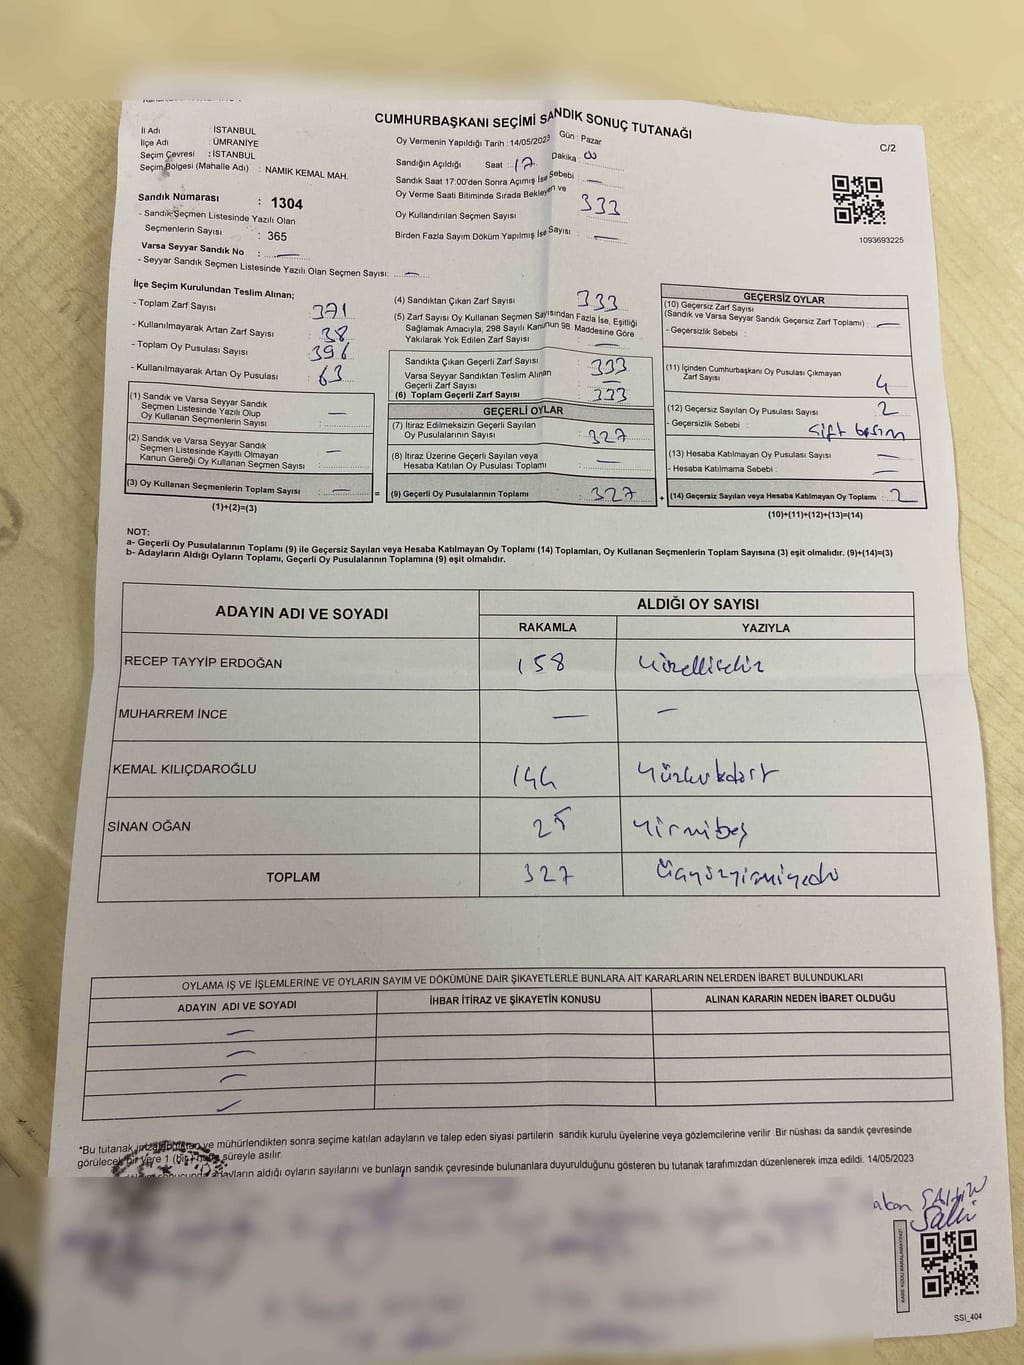 CUMHURBAŞKANI SEÇİMİ SANDIK SONUÇ TUTANAĞI
C/2
İl Adı : İSTANBUL
İlçe Adı : ÜMRANİYE
Seçim Çevresi : İSTANBUL
Seçim Bölgesi (Mahalle Adı) : NAMIK KEMAL MAH.
Sandık Numarası : 1304
- Sandık Seçmen Listesinde Yazılı Olan
Seçmenlerin Sayısı : 365
Varsa Seyyar Sandık No : —
- Seyyar Sandık Seçmen Listesinde Yazılı Olan Seçmen Sayısı: —
Oy Vermenin Yapıldığı Tarih : 14/05/2023 Gün : Pazar
Sandığın Açıldığı Saat : 17 Dakika :
Sandık Saat 17:00'den Sonra Açımış İse Sebebi : —
Oy Verme Saati Bitiminde Sırada Bekleyen ve
Oy Kullandırılan Seçmen Sayısı 333
Birden Fazla Sayım Döküm Yapılmış İse Sayısı : —
1093693225
İlçe Seçim Kurulundan Teslim Alınan;
- Toplam Zarf Sayısı : 371
- Kullanılmayarak Artan Zarf Sayısı : 38
- Toplam Oy Pusulası Sayısı : 396
- Kullanılmayarak Artan Oy Pusulası : 63
(1) Sandık ve Varsa Seyyar Sandık
Seçmen Listesinde Yazılı Olup
Oy Kullanan Seçmenlerin Sayısı : —
(2) Sandık ve Varsa Seyyar Sandık
Seçmen Listesinde Kayıtlı Olmayan
Kanun Gereği Oy Kullanan Seçmen Sayısı : —
(3) Oy Kullanan Seçmenlerin Toplam Sayısı : —
=
(1)+(2)=(3)
(4) Sandıktan Çıkan Zarf Sayısı 333
(5) Zarf Sayısı Oy Kullanan Seçmen Sayısından Fazla İse, Eşitliği
Sağlamak Amacıyla; 298 Sayılı Kanunun 98. Maddesine Göre
Yakılarak Yok Edilen Zarf Sayısı : —
Sandıkta Çıkan Geçerli Zarf Sayısı : 333
Varsa Seyyar Sandıktan Teslim Alınan
Geçerli Zarf Sayısı : —
(6) Toplam Geçerli Zarf Sayısı : 333
GEÇERLİ OYLAR
(7) İtiraz Edilmeksizin Geçerli Sayılan
Oy Pusulalarının Sayısı : 327
(8) İtiraz Üzerine Geçerli Sayılan veya
Hesaba Katılan Oy Pusulası Toplamı : —
(9) Geçerli Oy Pusulalarının Toplamı : 327
+
GEÇERSİZ OYLAR
(10) Geçersiz Zarf Sayısı
(Sandık ve Varsa Seyyar Sandık Geçersiz Zarf Toplamı) : —
- Geçersizlik Sebebi :
(11) İçinden Cumhurbaşkanı Oy Pusulası Çıkmayan
Zarf Sayısı 4
(12) Geçersiz Sayılan Oy Pusulası Sayısı : 2
- Geçersizlik Sebebi : çift basım
(13) Hesaba Katılmayan Oy Pusulası Sayısı : —
- Hesaba Katılmama Sebebi : —
(14) Geçersiz Sayılan veya Hesaba Katılmayan Oy Toplamı : 2
(10)+(11)+(12)+(13)=(14)
NOT:
a- Geçerli Oy Pusulalarının Toplamı (9) ile Geçersiz Sayılan veya Hesaba Katılmayan Oy Toplamı (14) Toplamları, Oy Kullanan Seçmenlerin Toplam Sayısına (3) eşit olmalıdır. (9)+(14)=(3)
b- Adayların Aldığı Oyların Toplamı, Geçerli Oy Pusulalarının Toplamına (9) eşit olmalıdır.
ADAYIN ADI VE SOYADI
ALDIĞI OY SAYISI
RAKAMLA YAZIYLA
RECEP TAYYİP ERDOĞAN 158 yüzellisekiz
MUHARREM İNCE — —
KEMAL KILIÇDAROĞLU 144 yüzkırkdört
SİNAN OĞAN 25 yirmibeş
TOPLAM 327 üçyüzyirmiyedi
OYLAMA İŞ VE İŞLEMLERİNE VE OYLARIN SAYIM VE DÖKÜMÜNE DAİR ŞİKAYETLERLE BUNLARA AİT KARARLARIN NELERDEN İBARET BULUNDUKLARI
ADAYIN ADI VE SOYADI İHBAR İTİRAZ VE ŞİKAYETİN KONUSU ALINAN KARARIN NEDEN İBARET OLDUĞU
—
—
—
—
*Bu tutanak ve mühürlendikten sonra seçime katılan adayların ve talep eden siyasi partilerin sandık kurulu üyelerine veya gözlemcilerine verilir .Bir nüshası da sandık çevresinde
görülecek bir yere 1 (bir) süreyle asılır.
adayların aldığı oyların sayılarını ve bunların sandık çevresinde bulunanlara duyurulduğunu gösteren bu tutanak tarafımızdan düzenlenerek imza edildi. 14/05/2023
ŞAHİN
SSİ_404